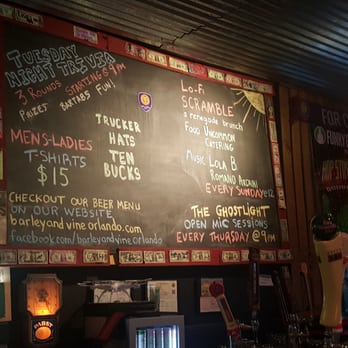 TUESDAY
NIGHT TREVIA
3 ROUNDS STARTING @ 9PM
PRIZES BARTABS FUN!
TRUCKER
HATS
TEN
BUCKS
MENS-LADIES
T-SHIRTS
$15
CHECKOUT OUR BEER MENU
ON OUR WEBSITE
barleyandvineorlando.com
facebook.com/barleyandvine.orlando
LO-FI
SCRAMBLE
a renegade brunch
FOOD UNCOMMON
CATERING
MUSIC LOLA B
ROMANO
EVERY SUNDAY @12
THE GHOSTLIGHT
OPEN MIC SESSIONS
EVERY THURSDAY @ 9PM
FOR
PABST